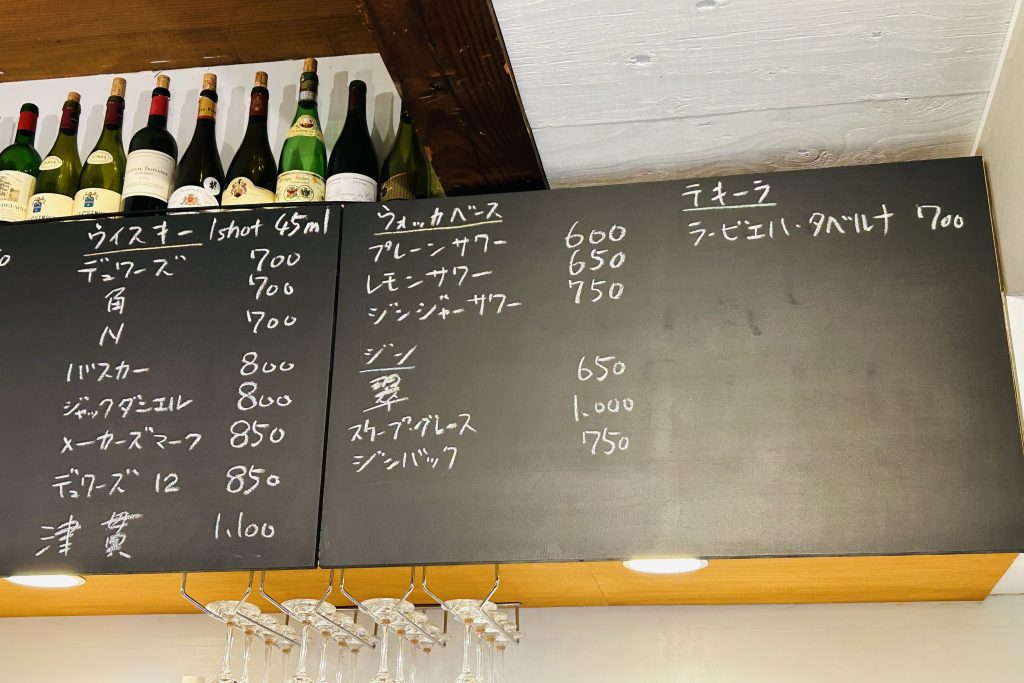 ウイスキー 1shot 45ml
デュワーズ 700
角 700
N 700
バスカー 800
ジャックダニエル 800
メーカーズマーク 850
デュワーズ 12 850
津貫 1.100
ウォッカベース
プレーンサワー 600
レモンサワー 650
ジンジャーサワー 750
ジン
翠 650
スケープグレース 1.000
ジンバック 750
テキーラ
ラ・ビエハ・タベルナ 700